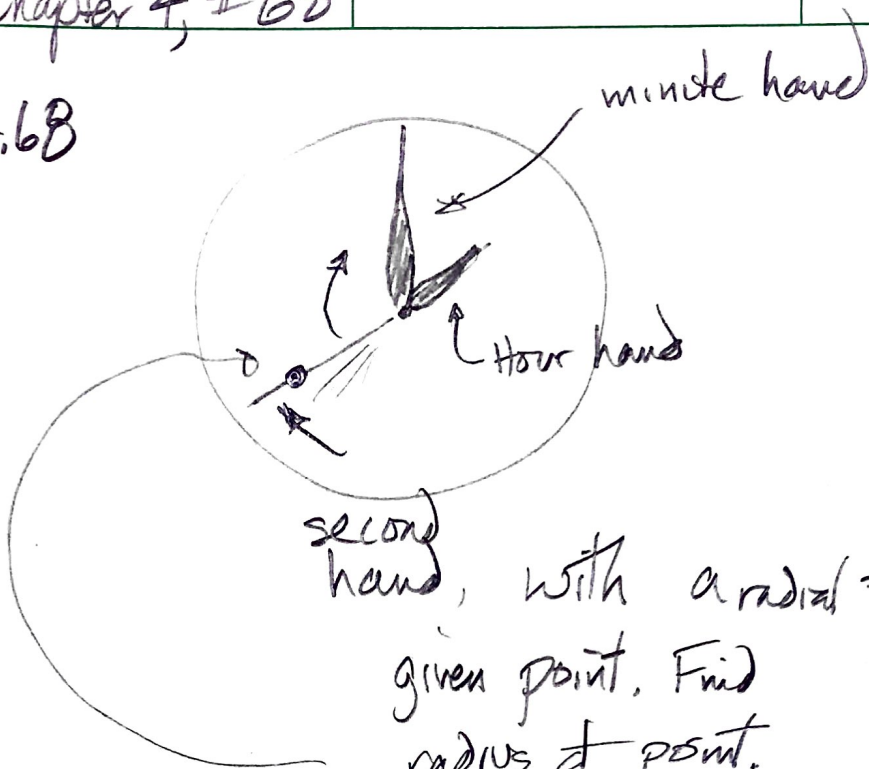 Chapter 4, # 68
minute hand
.68
Hour hand
second
hand, with a radial =
given point. Find
radius at point.